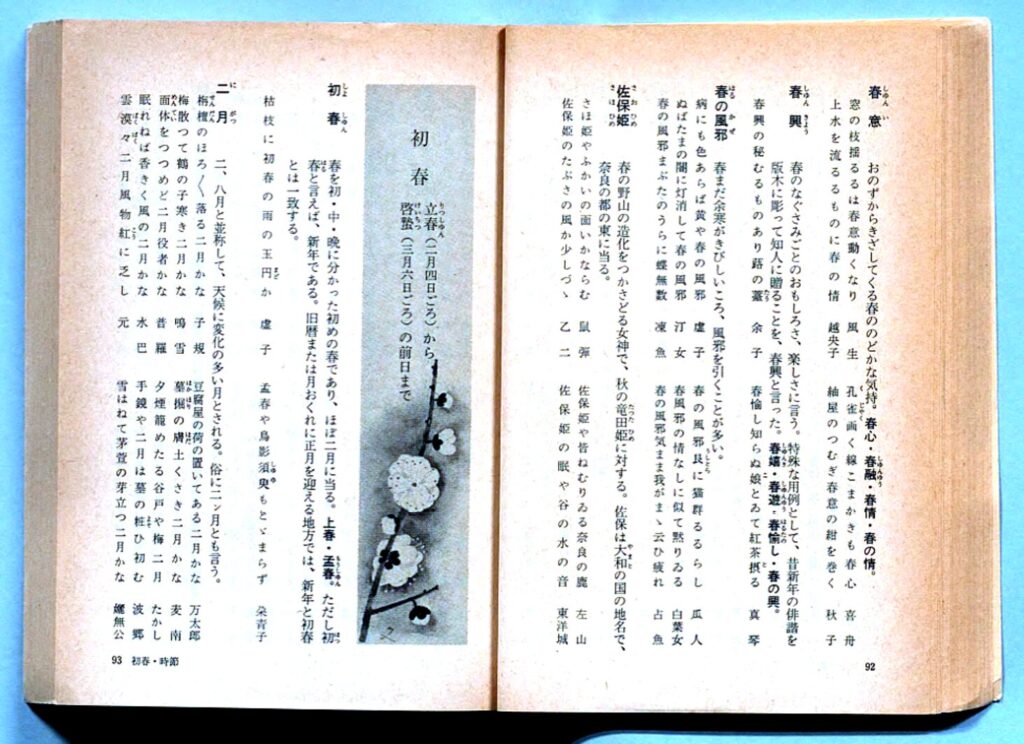 春意 おのずからきざしてくる春ののどかな気持。春心・春融・春情・春の情。
窓の枝揺るるは春意動くなり 風生
孔雀画く線こまかきも春心 喜舟
上水を流るるものに春の情 越央子
紬屋のつむぎ春意の紺を巻く 秋子
春興 春のなぐさみごとのおもしろさ、楽しさに言う。特殊な用例として、昔新年の俳諧を
版木に彫って知人に贈ることを、春興と言った。春嬉・春遊・春愉し・春の興。
春興の秘むるものあり蕗の薹 余子
春愉し知らぬ娘とゐて紅茶摂る 真琴
春の風邪 春まだ余寒がきびしいころ、風邪を引くことが多い。
病にも色あらば黄や春の風邪 虚子
春の風邪艮に猫群るるらし 瓜人
ぬばたまの闇に灯消して春の風邪 汀女
春風邪の情なしに似て黙りゐる 白葉女
春の風邪まぶたのうらに蝶無数 凍魚
春の風邪気まま我がまゝ云ひ疲れ 占魚
佐保姫 春の野山の造化をつかさどる女神で、秋の竜田姫に対する。佐保は大和の国の地名で、
奈良の都の東に当る。
さほ姫やふかいの面いかならむ 鼠弾
佐保姫や皆ねむりゐる奈良の鹿 左山
佐保姫のたぶさの風か少しづゝ 乙二
佐保姫の眠や谷の水の音 東洋城
92
初春
立春(二月四日ごろ)から、
啓蟄(三月六日ごろ)の前日まで
初春 春を初・中・晩に分かった初めの春であり、ほぼ二月に当る。上春・孟春。ただし初
春と言えば、新年である。旧暦または月おくれに正月を迎える地方では、新年と初春
とは一致する。
枯枝に初春の雨の玉円か 虚子
孟春や鳥影須臾もとゞまらず 朶青子
二月 二、八月と並称して、天候に変化の多い月とされる。俗に二ン月とも言う。
栴檀のほろ〳〵落る二月かな 子規
豆腐屋の荷の置いてある二月かな 万太郎
梅散つて鶴の子寒き二月かな 鳴雪
墓掘の膚土くさき二月かな 麦南
面体をつつめど二月役者かな 普羅
夕煙籠めたる谷戸や梅二月 たかし
眠れねば香きく風の二月かな 水巴
手鏡や二月は墓の粧ひ初む 波郷
雲漠々二月風物紅に乏し 元
雪はねて茅萱の芽立つ二月かな 嬾無公
93 初春・時節